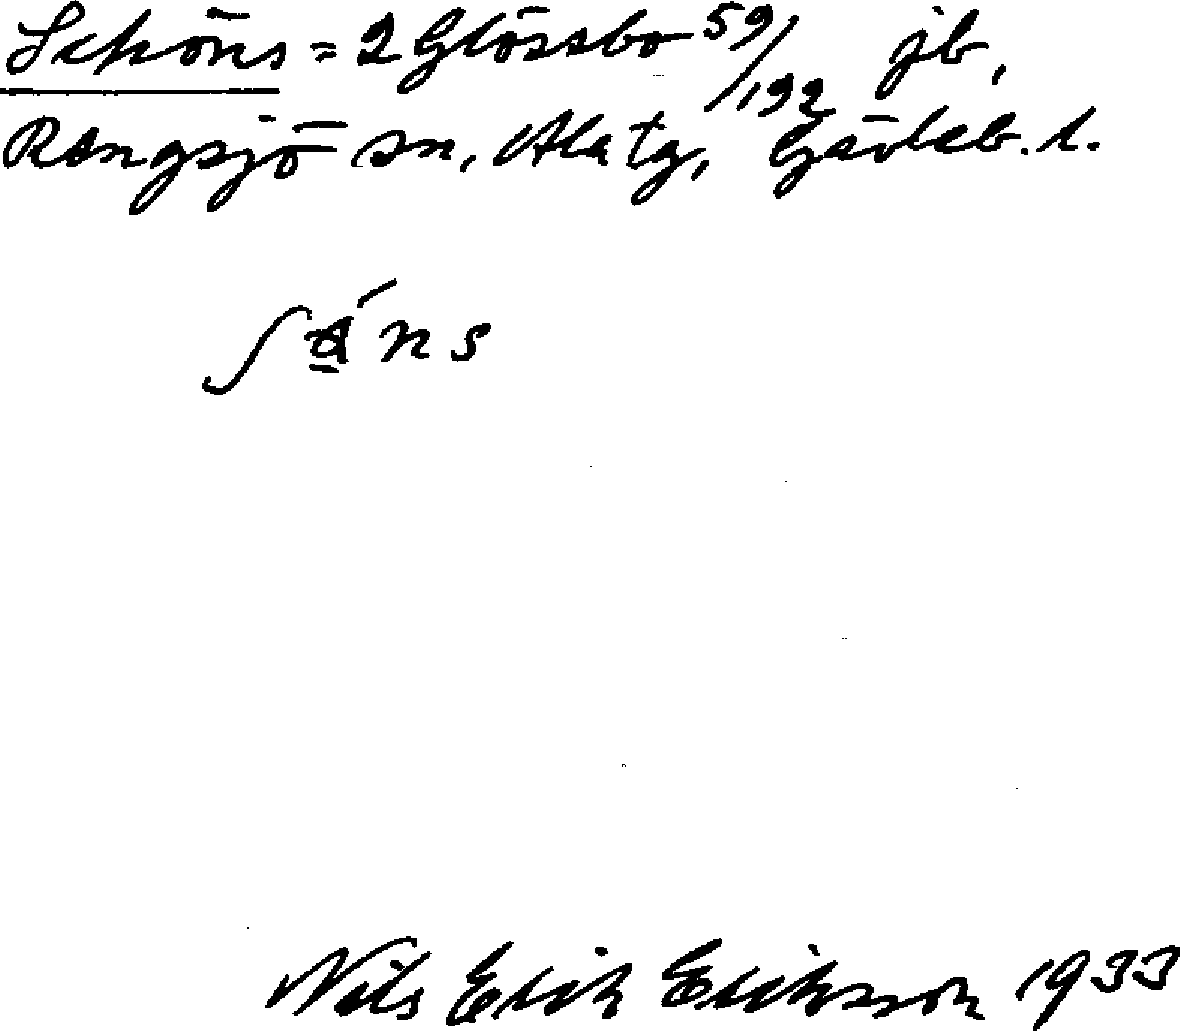 Schöns = 2 Glössbo 59/192 jb,
Rengsjö sn, Ala tg, Gävleb. l.
Nils Erik Eriksson 1933